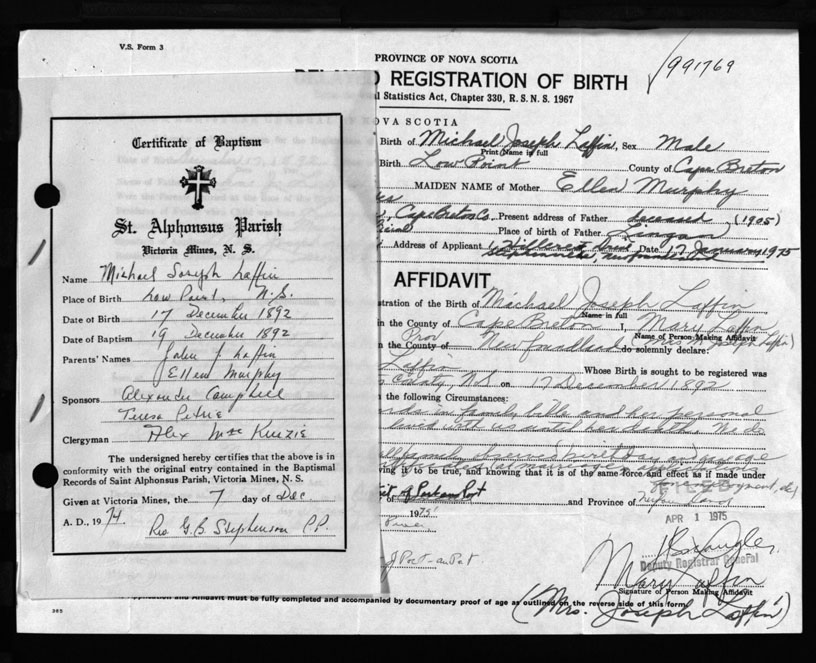 V.S. Form 3
Certificate of Baptism
St. Alphonsus Parish
Victoria Mines, N. S.
Name Michael Joseph Laffin
Place of Birth Low Point, N.S.
Date of Birth 17 December 1892
Date of Baptism 19 December 1892
Parents' Names John J Laffin
Ellen Murphy
Sponsors Alexander Campbell
Teresa Petrie
Clergyman Alex MacKenzie
The undersigned hereby certifies that the above is in
conformity with the original entry contained in the Baptismal
Records of Saint Alphonsus Parish, Victoria Mines, N. S.
Given at Victoria Mines, the 7 day of Dec.
A. D., 1974. Rev G.B. Stephenson P.P.
PROVINCE OF NOVA SCOTIA
REGISTRATION OF BIRTH
991769
Statistics Act, Chapter 330, R.S.N.S. 1967
NOVA SCOTIA
Birth of Michael Joseph Laffin, Sex Male
Print Name in full
Birth Low Point County of Cape Breton
MAIDEN NAME of Mother Ellen Murphy
Cape Breton Co. Present address of Father deceased (1905)
Place of birth of Father Lingan
Address of Applicant 6 Hillcrest Date 17 January 1975
Stephenville, Newfoundland
AFFIDAVIT
stration of the Birth of Michael Joseph Laffin
Name in full
in the County of Cape Breton I, Mary Laffin
Name of Person Making Affidavit
(Mrs. Joseph Laffin)
Prov
n the County of Newfoundland do solemnly declare:
Laffin Whose Birth is sought to be registered was
County, N.S on 17 December 1892
the following Circumstances:
in family bible and her personal
lived with us until his death. He
family observed birthday and gave
at marriage, applications
ing it to be true, and knowing that it is of the same force and effect as if made under
for employment, etc)
FILED
of Port au Port and Province of
1975
APR 1 1975
Port-au-Port
Deputy Registrar General
Mary Laffin
Signature of Person Making Affidavit
(Mrs. Joseph Laffin)
and Affidavit must be fully completed and accompanied by documentary proof of age as outlined on the reverse side of this form